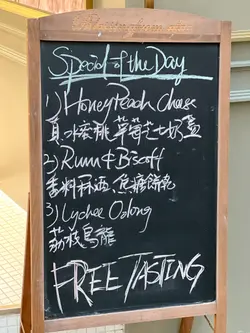 Special of the Day
1) Honey Peach Cheese
真水蜜桃草莓芝士奶蓋
2) Rum & Biscoff
香料冧酒、焦糖餅乾
3) Lychee Oolong
荔枝烏龍
FREE TASTING